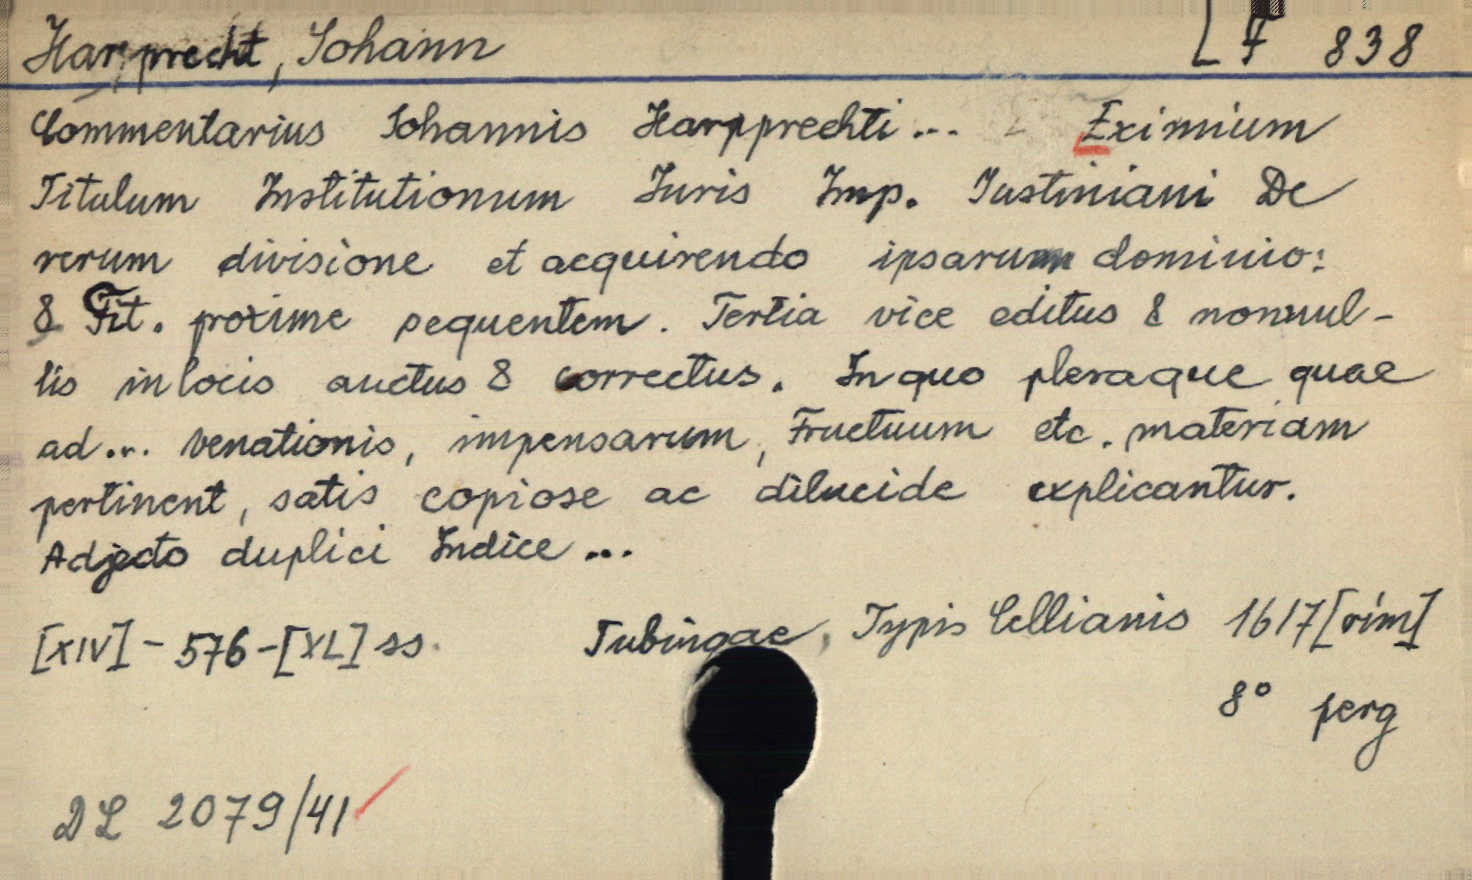 Harpprecht, Johann LF 838
Commentarius Johannis Harpprechti ... - Eximium
Titulum Institutionum Juris Imp. Justiniani De
rerum divisione et acquirendo ipsarum dominio:
& Tit. proxime sequentem. Tertia vice editus & nonnul-
lis in locis auctus & correctus. In quo pleraque quae
ad ... venationis, impensarum, Fructuum etc. materiam
pertinent, satis copiose ac dilucide explicantur.
Adjecto duplici Indice ...
[XIV] - 576 - [XL] ss. Tubingae, Typis Cellianis 1617 [rim]
8° perg
DL 2079/41